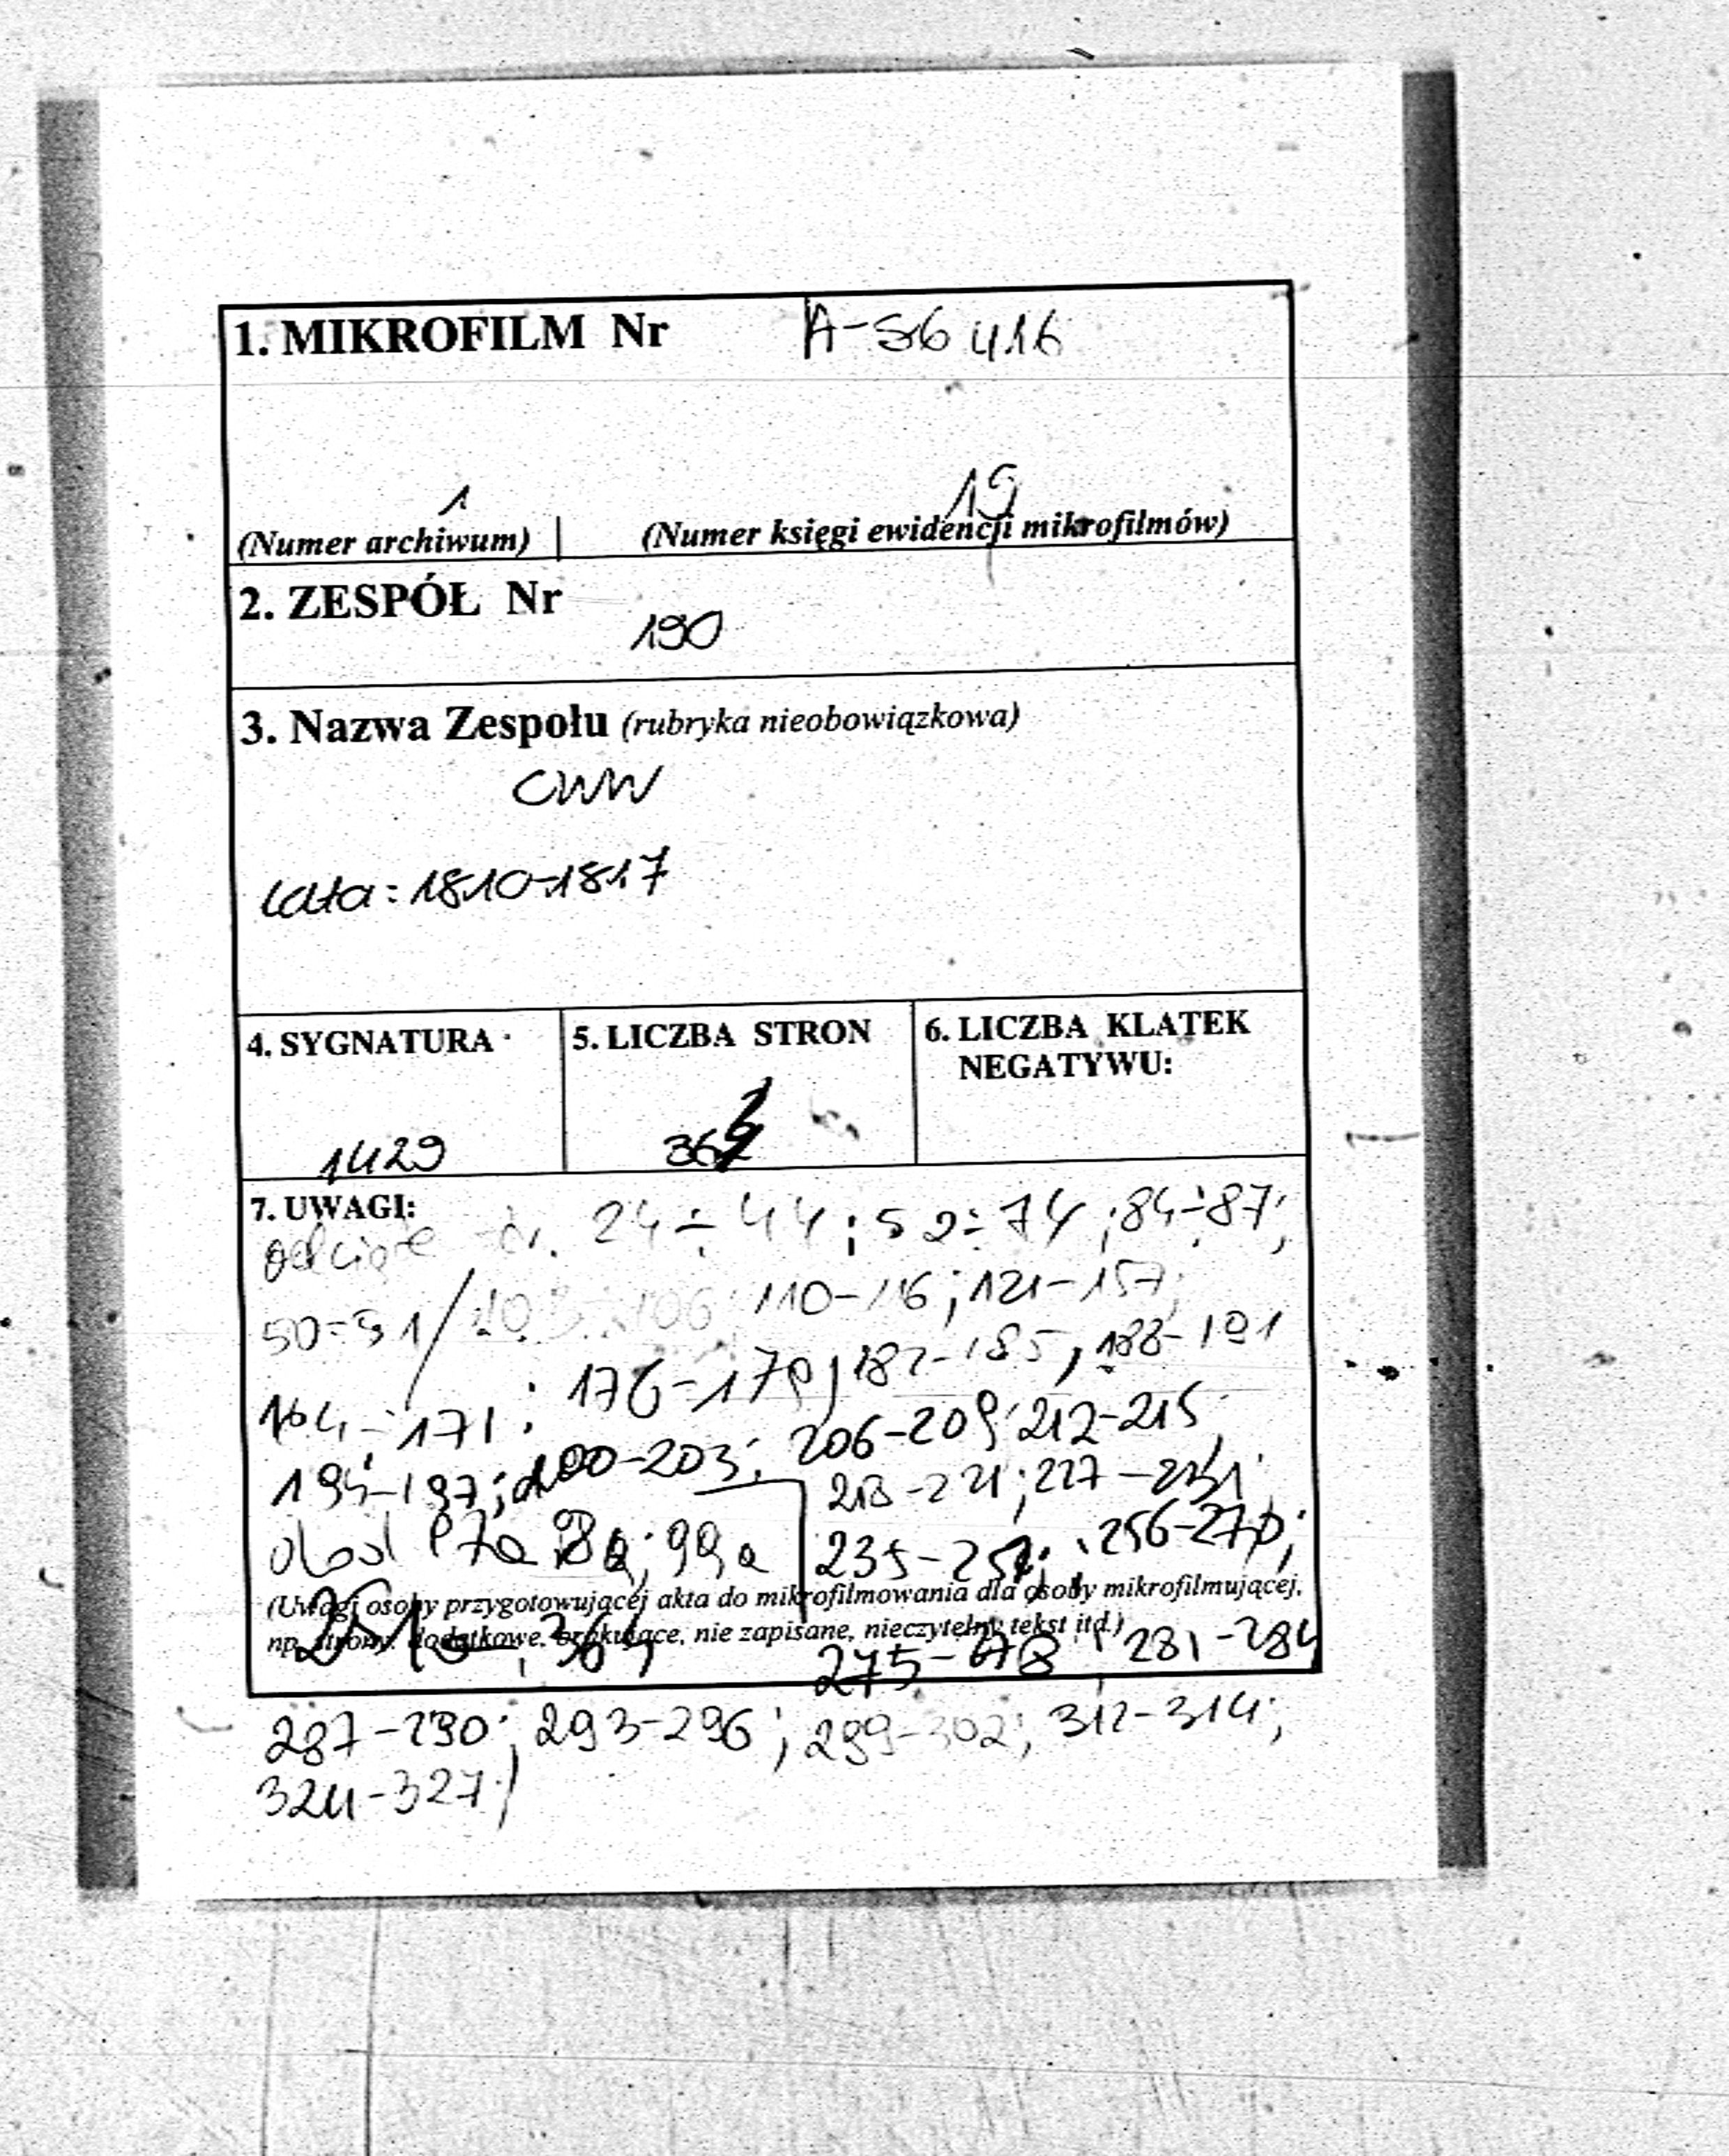 1. MIKROFILM Nr A-56 416
1 19
(Numer archiwum) | (Numer księgi ewidencji mikrofilmów)
2. ZESPÓŁ Nr
190
3. Nazwa Zespołu (rubryka nieobowiązkowa)
CWW
Lata: 1810-1817
4. SYGNATURA
1429
5. LICZBA STRON
6. LICZBA KLATEK
NEGATYWU:
7. UWAGI:
24÷44; 52÷74; 84÷87;
110-116; 121-157;
171; 176-179, 182-185, 188-191
194-197; 200-203; 206-209; 212-215
227-231
dod 99a
235- 256-270;
(Uwagi osoby przygotowującej akta do mikrofilmowania dla osoby mikrofilmującej,
np. strony: dodatkowe, brakujące, nie zapisane, nieczytelny tekst itd.)
364 281-284
287-290; 293-296; 299-302; 312-314;
324-327/